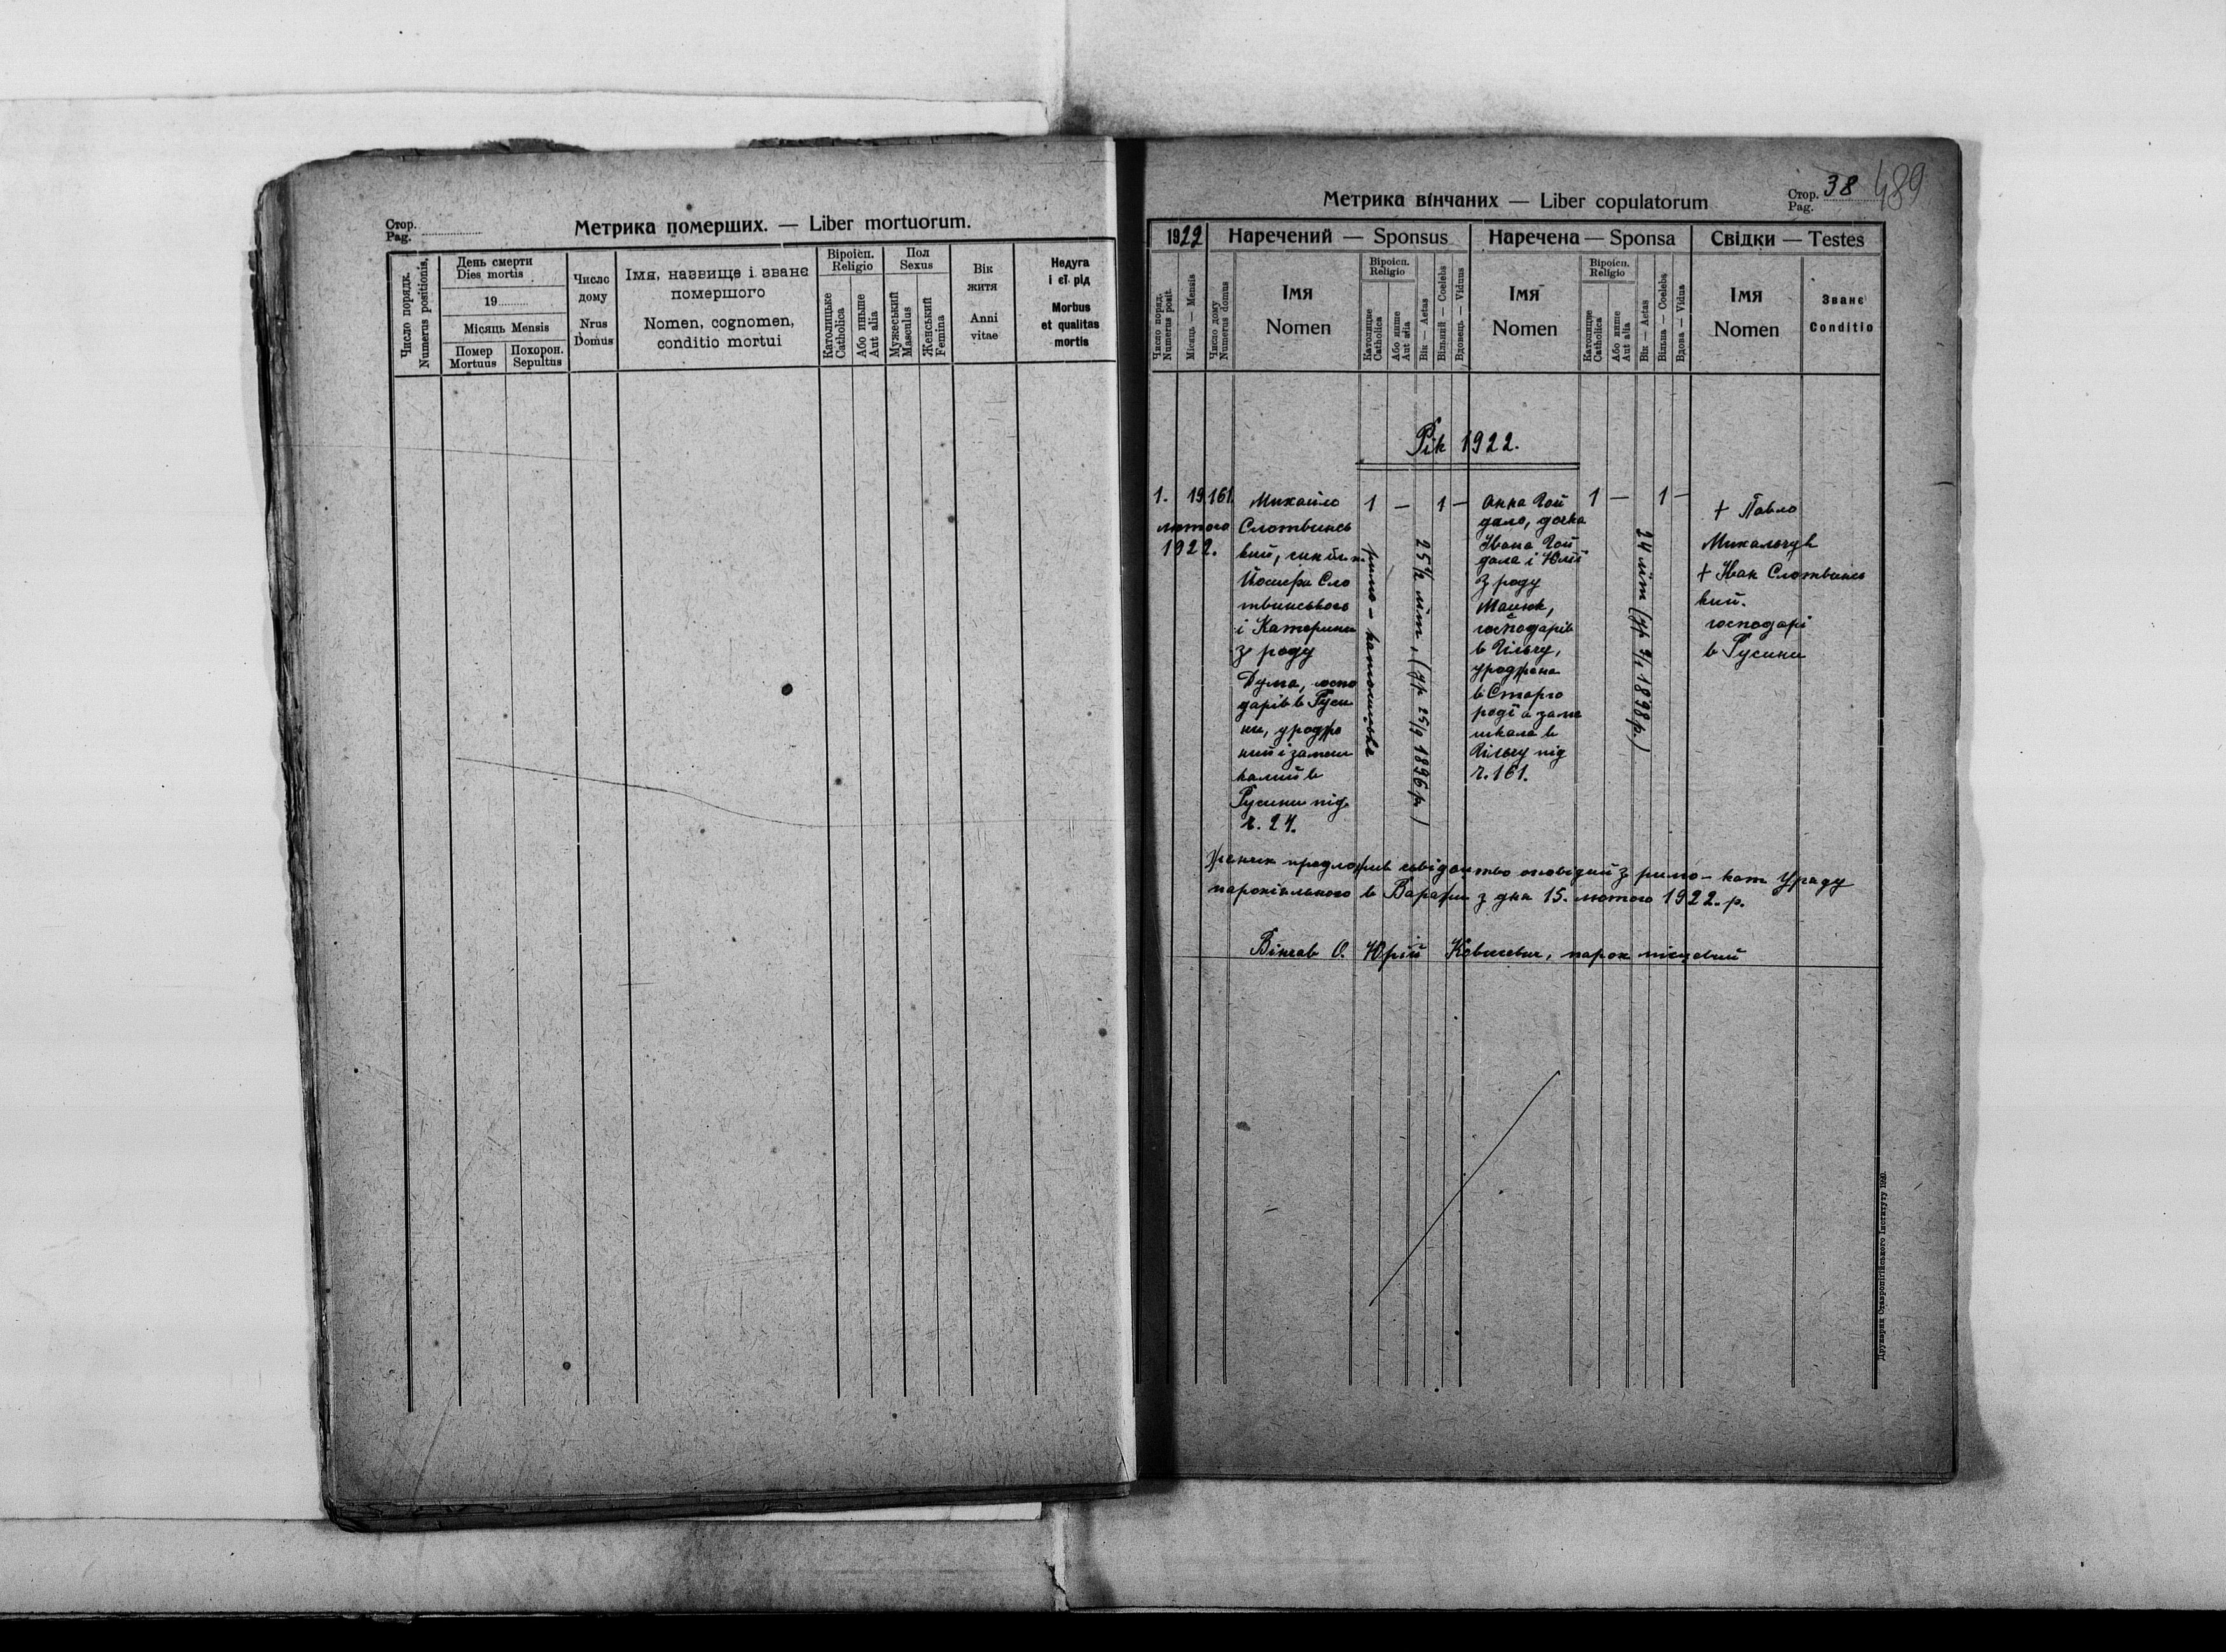 Стор.
Pag.
Метрика померших. — Liber mortuorum.
Число порядк.
Numerus positionis,
День смерти
Dies mortis
19
Місяць Mensis
Помер
Mortuus
Похорон.
Sepultus
Число
дому
Nrus
Domus
Імя, назвище і званє
помершого
Nomen, cognomen,
conditio mortui
Віроісп.
Religio
Католицьке
Catholica
Або иньше
Aut alia
Пол
Sexus
Мужеський
Masculus
Женський
Femina
Вік
житя
Anni
vitae
Недуга
і єї рід
Morbus
et qualitas
mortis
Метрика вінчаних — Liber copulatorum
Стор. 38
Pag.
489
1922
Наречений — Sponsus
Наречена — Sponsa
Свідки — Testes
Число поряд.
Numerus posit.
Місяць — Mensis
Число дому
Numerus domus
Імя
Nomen
Віроісп.
Religio
Католицке
Catholica
Або инше
Aut alia
Вік — Aetas
Вільний — Coelebs
Вдовець — Viduus
Імя
Nomen
Віроісп.
Religio
Католицке
Catholica
Або инше
Aut alia
Вік — Aetas
Вільна — Coelebs
Вдова — Vidua
Імя
Nomen
Званє
Conditio
Рік 1922.
1.
19
лютого
1922.
161.
Михайло
Слотвинсь
кий, син
Йосифа Сло
твинського
і Катерини
з роду
Дума, госпо
дарів в Руси
ни, уродже
ний і замеш
калий в
Русини під
ч. 24.
1 —
римо - католицьке
25½ літ, (ур 25/9 1896 р.)
1 —
Анна Гой
дало, дочка
Івана Гой
дала і Юлії
з роду
Мацюк,
господарів
в Вільчу,
уроджена
в Старго
роді а заме
шкала в
Вільчу під
ч. 161.
1 —
24 літ (ур 9/1 1898 р.)
1 —
+ Павло
Михальчук
+ Іван Слотвинсь
кий.
господарі
в Русини
Женик предложив свідоцтво оповідий з римо - кат Уряду
парохіяльного в Варяжи з дня 15. лютого 1922. р.
Вінчав О. Юрій парох місцевий
Друкарня Ставропігійського Інституту